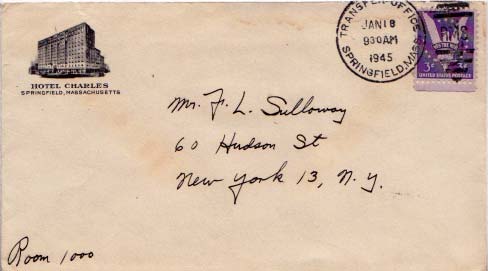 HOTEL CHARLES
SPRINGFIELD, MASSACHUSETTS
TRANSFER OFFICE
JAN 18
930 AM
1945
SPRINGFIELD, MASS.
WIN THE WAR
3¢
UNITED STATES POSTAGE
Mr. F. L. Sulloway
60 Hudson St
New York 13, N.Y.
Room 1000